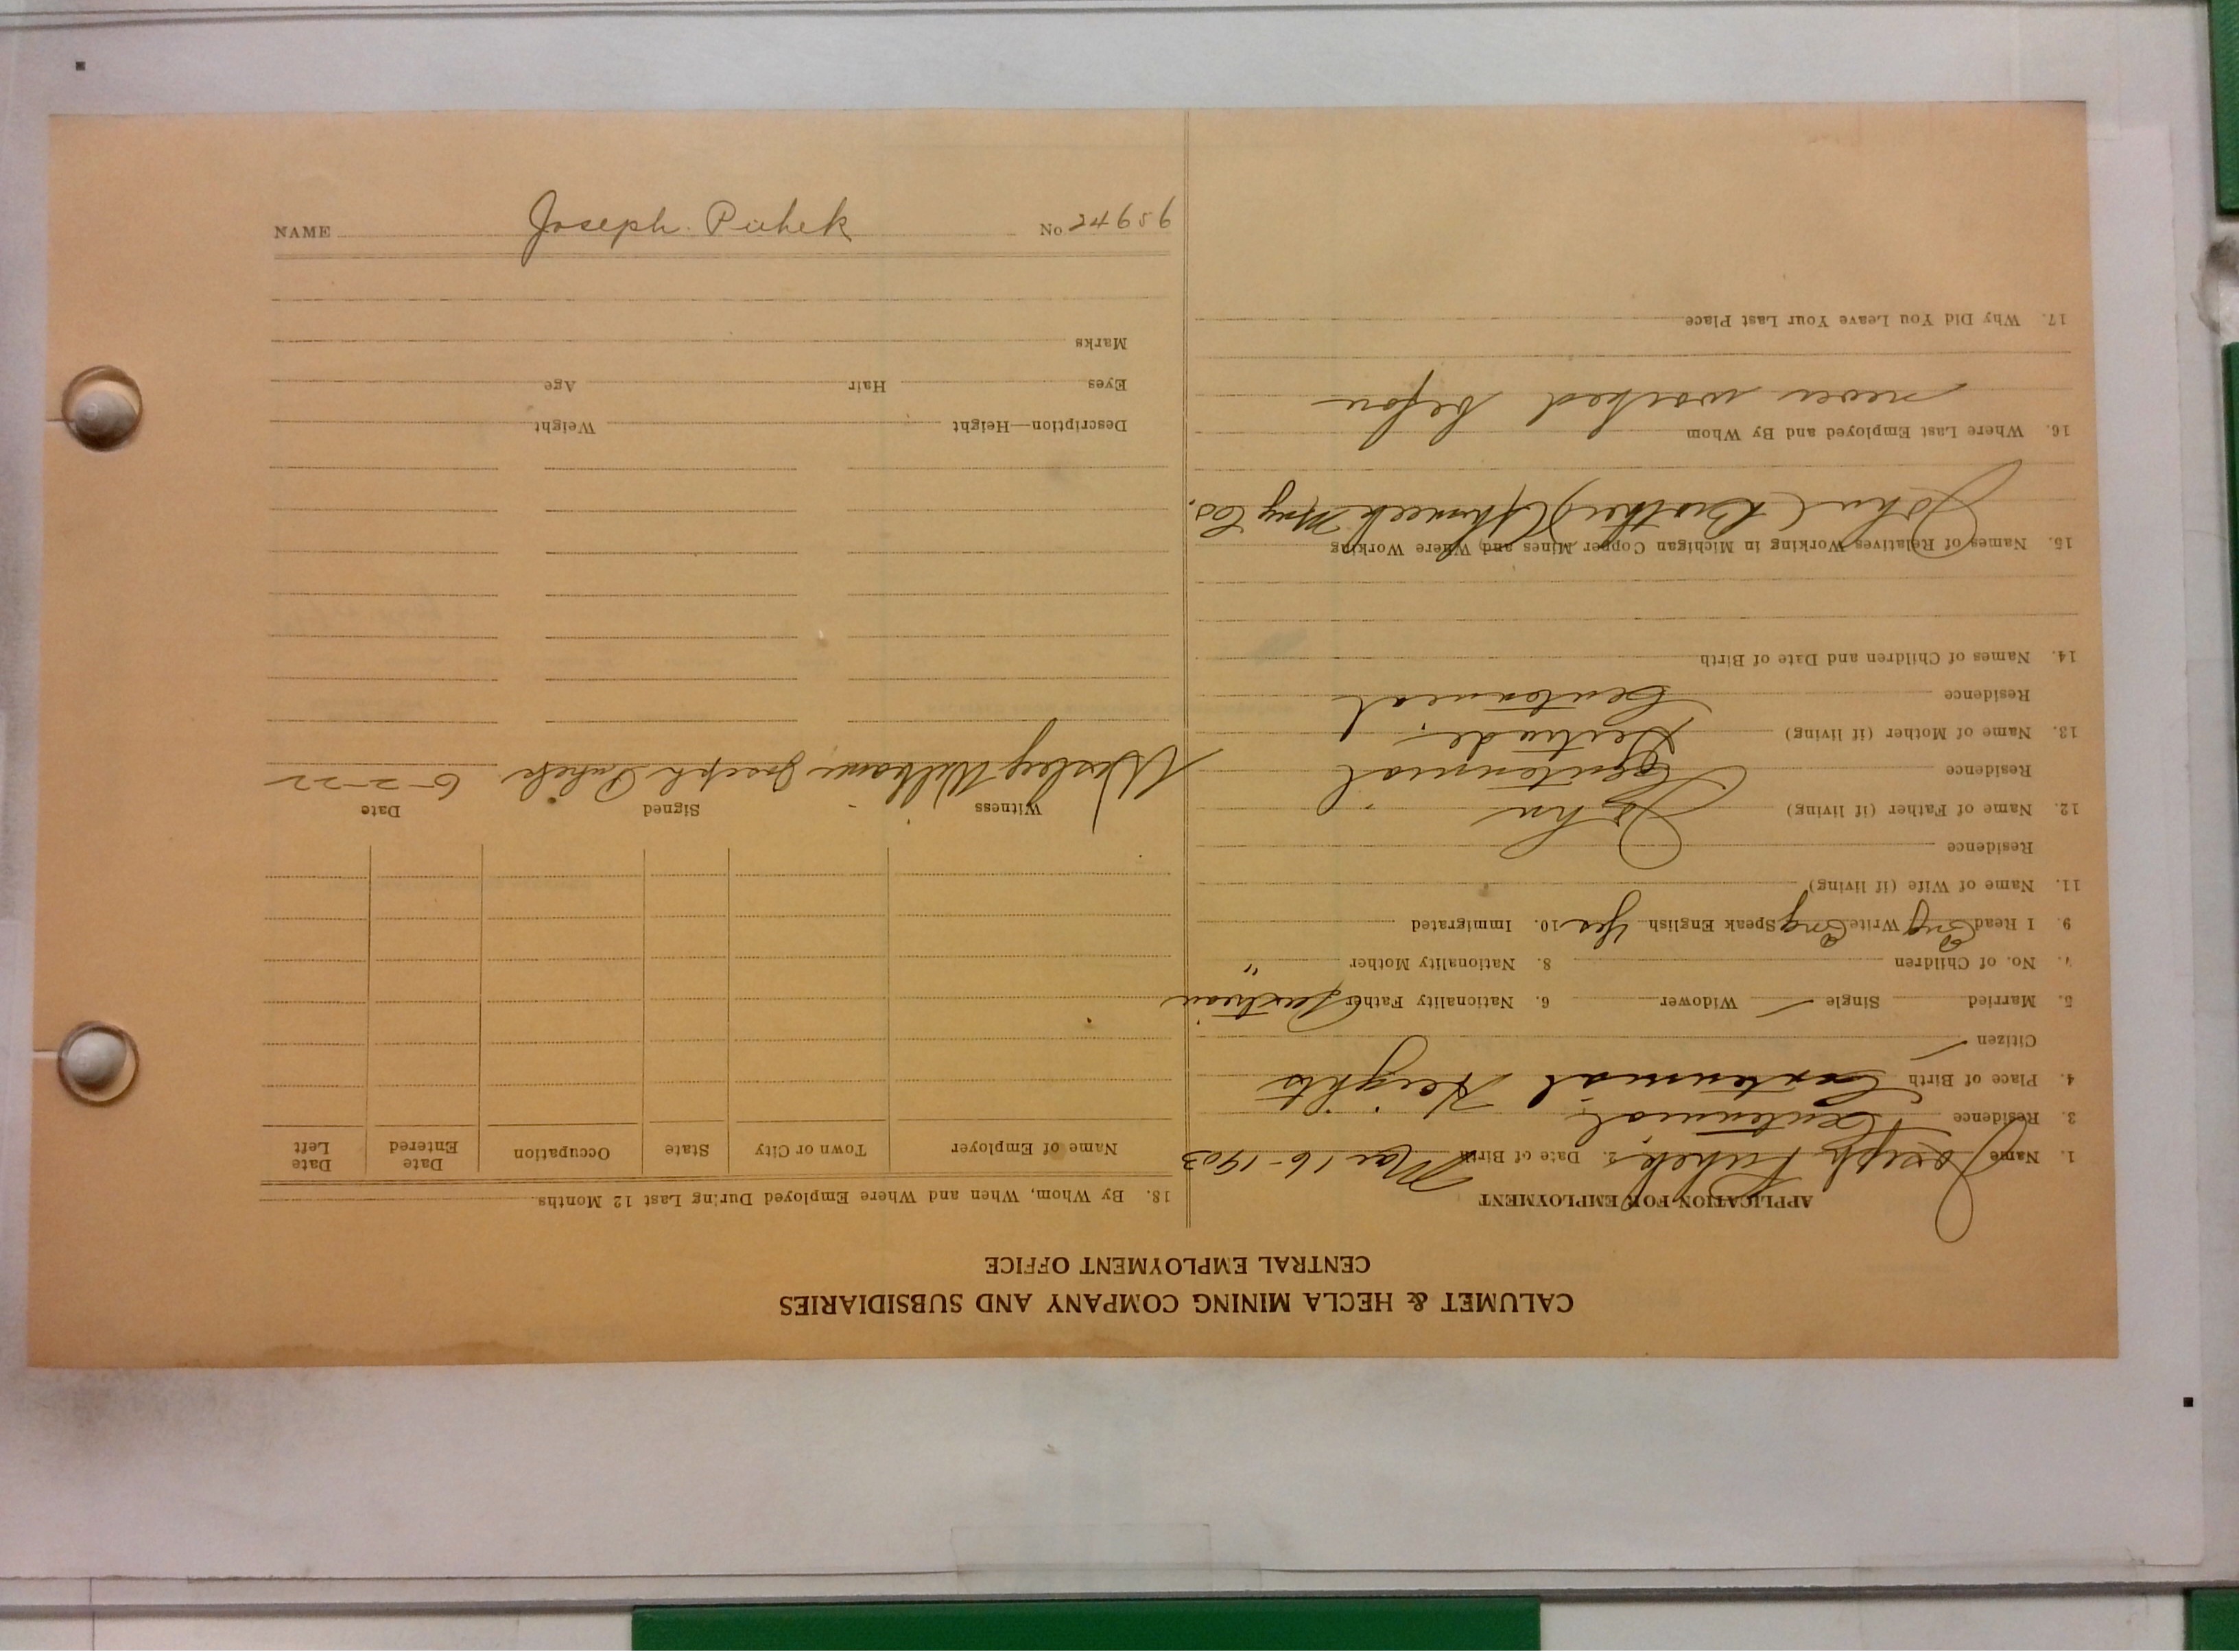 CALUMET & HECLA MINING COMPANY AND SUBSIDIARIES
CENTRAL EMPLOYMENT OFFICE
APPLICATION FOR EMPLOYMENT
1. Name Joseph Puhek 2. Date of Birth Mar 16-1903
3. Residence Centennial
4. Place of Birth Centennial Heights
Citizen
5. Married Single Widower 6. Nationality Father Austrian
7. No. of Children 8. Nationality Mother "
9. I Read Eng Write Eng Speak English Yes 10. Immigrated
11. Name of Wife (if living)
Residence
12. Name of Father (if living) John
Residence Centennial
13. Name of Mother (if living) Gertrude
Residence Centennial
14. Names of Children and Date of Birth
15. Names of Relatives Working in Michigan Copper Mines and Where Working
John (Brother) Ahmeek Mng Co.
16. Where Last Employed and By Whom
never worked before
17. Why Did You Leave Your Last Place
18. By Whom, When and Where Employed During Last 12 Months
Name of Employer Town or City State Occupation Date Entered Date Left
Witness Signed Date
Wesley Williams Joseph Puhek 6-2-22
Description—Height Weight
Eyes Hair Age
Marks
NAME Joseph Puhek No 24656